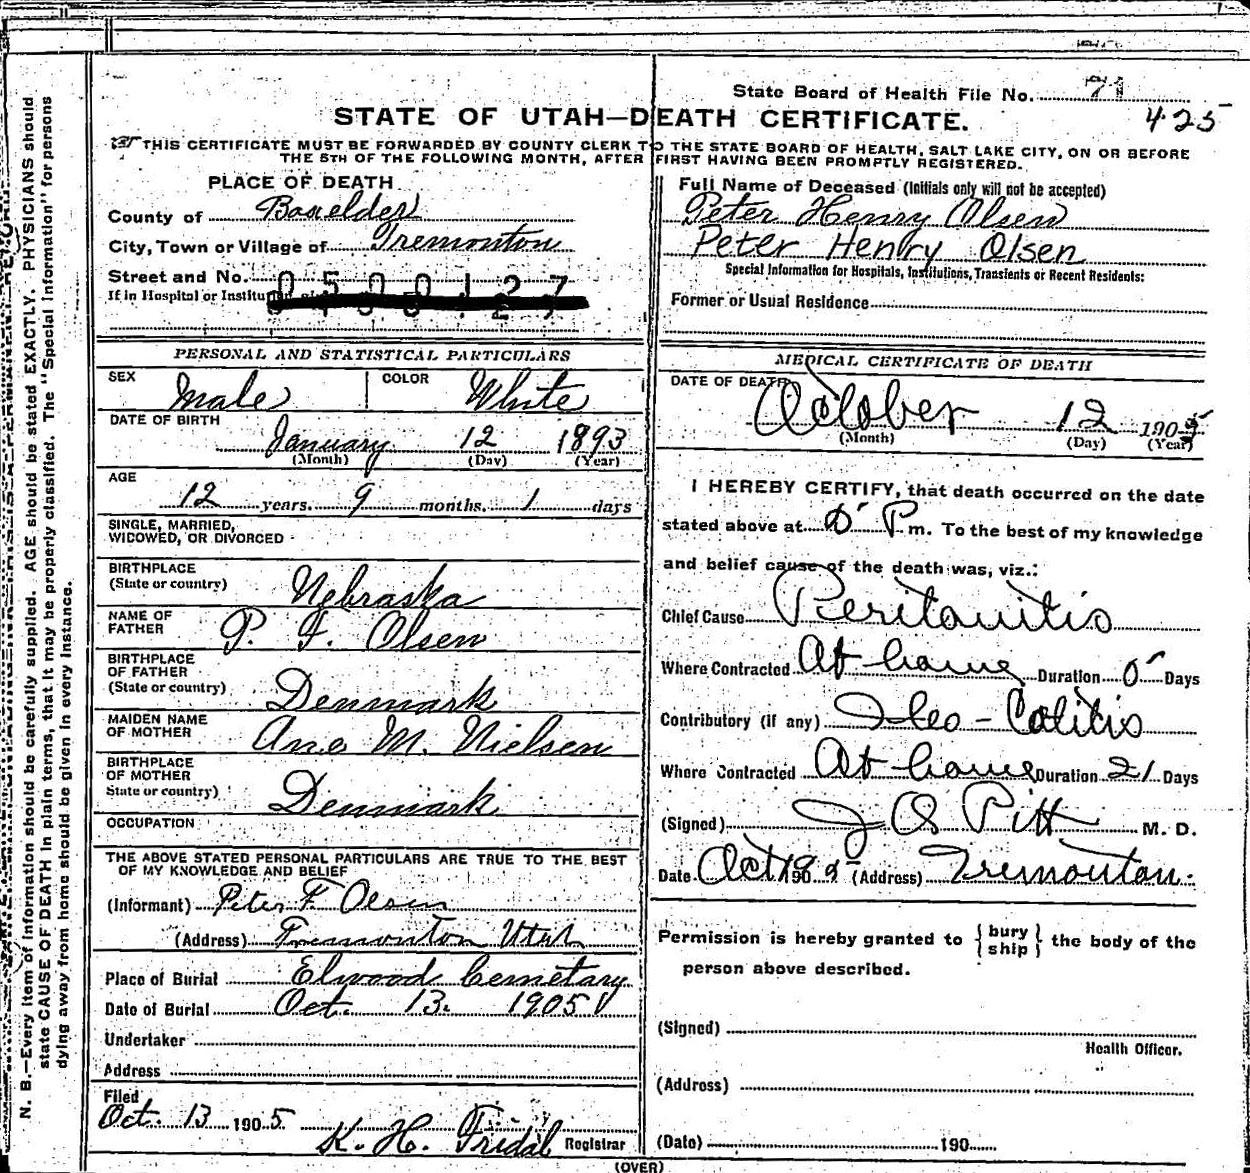 State Board of Health File No. 71
STATE OF UTAH—DEATH CERTIFICATE.
425
THIS CERTIFICATE MUST BE FORWARDED BY COUNTY CLERK TO THE STATE BOARD OF HEALTH, SALT LAKE CITY, ON OR BEFORE
THE 5TH OF THE FOLLOWING MONTH, AFTER FIRST HAVING BEEN PROMPTLY REGISTERED.
N. B.—Every item of information should be carefully supplied. AGE should be stated EXACTLY. PHYSICIANS should
state CAUSE OF DEATH in plain terms, that it may be properly classified. The "Special Information" for persons
dying away from home should be given in every instance.
PLACE OF DEATH
County of Boxelder
City, Town or Village of Tremonton
Street and No. 0500127
If in Hospital or Institution
PERSONAL AND STATISTICAL PARTICULARS
SEX Male COLOR White
DATE OF BIRTH
January 12 1893
(Month) (Day) (Year)
AGE
12 years. 9 months. 1 days
SINGLE, MARRIED,
WIDOWED, OR DIVORCED
BIRTHPLACE
(State or country) Nebraska
NAME OF
FATHER P. F. Olsen
BIRTHPLACE
OF FATHER
(State or country) Denmark
MAIDEN NAME
OF MOTHER Ane M. Nielsen
BIRTHPLACE
OF MOTHER
State or country) Denmark
OCCUPATION
THE ABOVE STATED PERSONAL PARTICULARS ARE TRUE TO THE BEST
OF MY KNOWLEDGE AND BELIEF
(Informant) Peter F. Olsen
(Address) Tremonton Utah
Place of Burial Elwood Cemetary
Date of Burial Oct. 13. 1905
Undertaker
Address
Filed
Oct. 13 1905. K. H. Fridal Registrar
(OVER)
Full Name of Deceased (Initials only will not be accepted)
Peter Henry Olsen
Peter Henry Olsen
Special Information for Hospitals, Institutions, Transients or Recent Residents:
Former or Usual Residence
MEDICAL CERTIFICATE OF DEATH
DATE OF DEATH
October 12 1905
(Month) (Day) (Year)
I HEREBY CERTIFY, that death occurred on the date
stated above at 5 P m. To the best of my knowledge
and belief cause of the death was, viz.:
Chief Cause Peritonitis
Where Contracted At home Duration 5 Days
Contributory (if any) Ileo-Colitis
Where Contracted At home Duration 21 Days
(Signed) J Pitt M. D.
Date Oct 190 (Address) Tremonton.
Permission is hereby granted to { bury
ship } the body of the
person above described.
(Signed)
Health Officer.
(Address)
(Date) 190